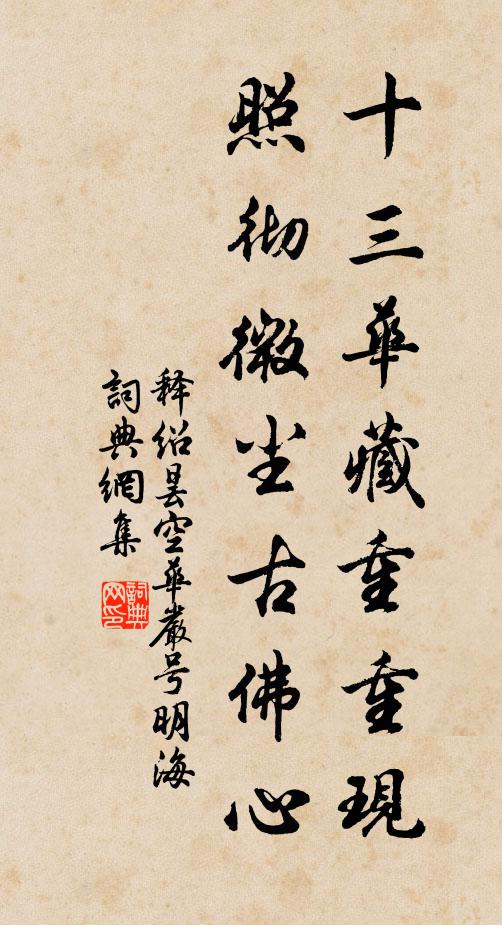 十三華藏重重現
照彻微尘古佛心
释绍曇空華嚴号明海
詞典網集
詞典网印